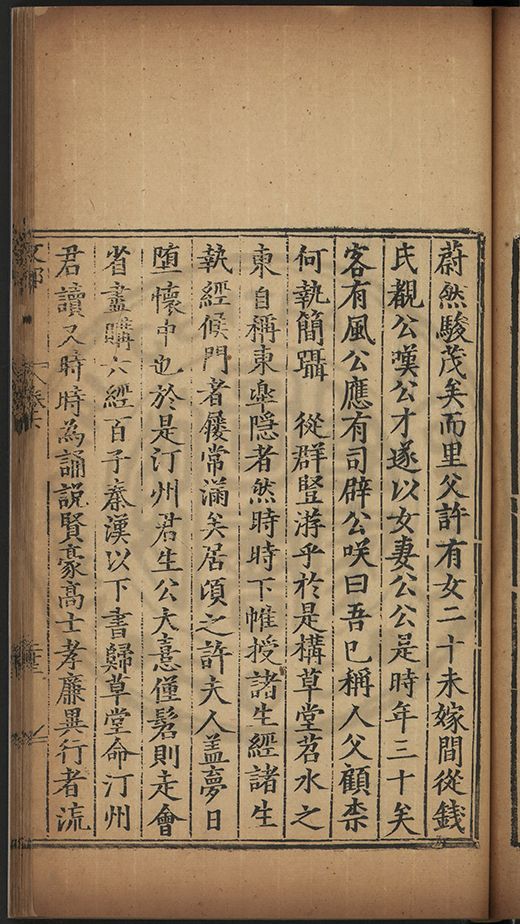 蔚然駿茂矣而里父許有女二十未嫁間從錢
氏觀公嘆公才遂以女妻公公是時年三十矣
客有風公應有司辟公咲曰吾已稱人父顧柰
何執簡躡 從群豎游乎於是構草堂苕水之
東自稱東臯隱者然時時下帷授諸生經諸生
執經候門者屨常滿矣居頃之許夫人盖夢日
堕懷中也於是汀州君生公大憙僅髫則走會
省盡購六經百子秦漢以下書歸草堂命汀州
君讀又時時為誦説賢豪高士孝廉異行者流